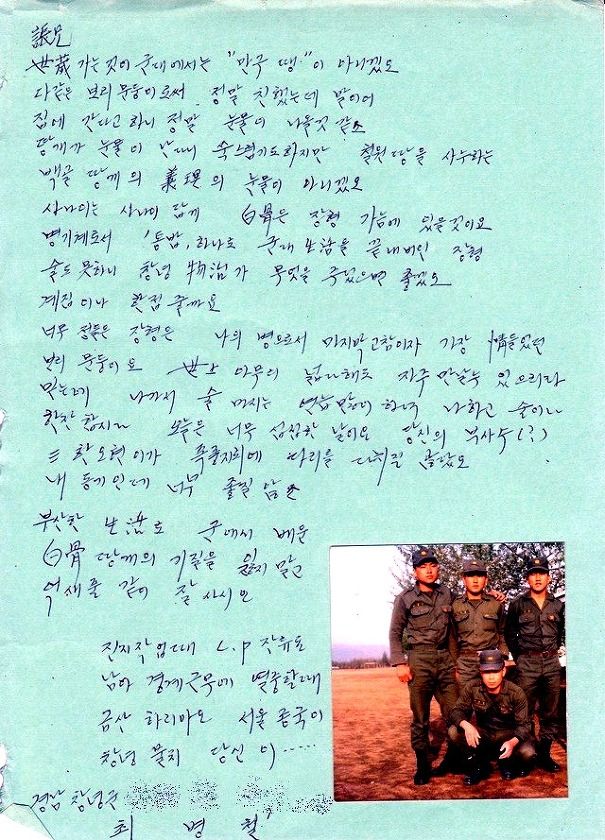 張兄
世歲 가는것이 군대에서는 "만구 땡"이 아니겠소
다같은 보리문둥이로써 정말 친했는데 말이여
집에 간다고 하니 정말 눈물이 나올것 같소
땅개가 눈물이 난다면 쑥스럽기도하지만 철원땅을 사수하는
백골 땅개의 義理의 눈물이 아니겠소
사나이는 사나이 답게 白骨은 장형 가슴에 있을것이요
병기체로서 '통밥,하나로 군대 生活을 끝내버린 장형
술도 못하니 창녕 物治가 무엇을 주었으면 좋겠소
계집이나 한점 줄까요
너무 정들은 장형은 나의 병으로서 마지막고참이자 가장 情들었던
보리 문둥이요 世上 아무리 넓다해도 자주 만날수 있으리라
믿는데 나가서 술 마시는 연습많이 하여 나하고 술이나
한잔 합시다 오늘은 너무 섭섭한 날이요 당신의 부사수(?)
오현이가 폭풍지뢰에 다리를 다쳐질 몰랐소
내 동기인데 너무 졸질 않소
부산한 生活로 군에서 배운
白骨 땅개의 기질을 잊지 말고
억새풀 같이 잘 사시오
진지작업때 L.P 잔류로
남아 경계근무에 열중할때
금산 하리마오 서울 종국이
창녕 물치 당신 이·····
경남 창녕군
최 병 철